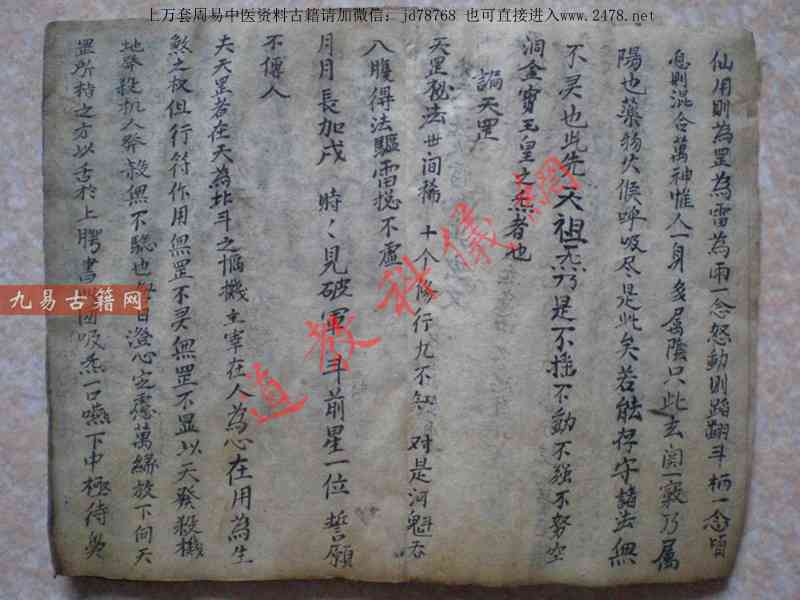 上万套周易中医资料古籍请加微信：jd78768 也可直接进入www.2478.net
仙用則為罡為雷為雨一念怒動則蹈翻斗柄一念皆
息則混合萬神惟人一身多屬陰只此玄関一竅乃属
陽也藥物火候呼吸尽是此矣若能存守諸法無
不灵也此先天祖炁乃是不摇不動不强不努空
洞金寳玉皇之炁者也
論天罡
天罡秘法世间稀 十个修行九不知 对是河魁吞
八腹得法驅雷挠不虚
月月長加戌 時々見破軍 斗前星一位 誓願
不傳人
夫天罡者在天為北斗之樞機主宰在人為心在用為生
煞之权但行符作用無罡不灵無罡不显以天發殺機
地發殺机人發殺無不驗也 日澄心定慮萬緣放下向天
罡所指之方以舌抵上腭書 吸炁一口嚥下中極待
道教科儀網
九易古籍网